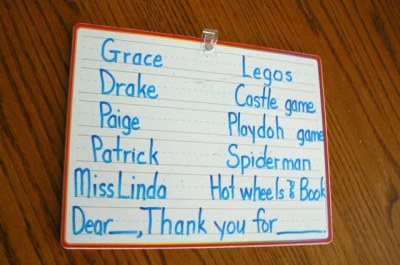 Grace Legos
Drake Castle game
Paige Playdoh game
Patrick Spiderman
Miss Linda Hot wheels & Book
Dear___, Thank you for_____.